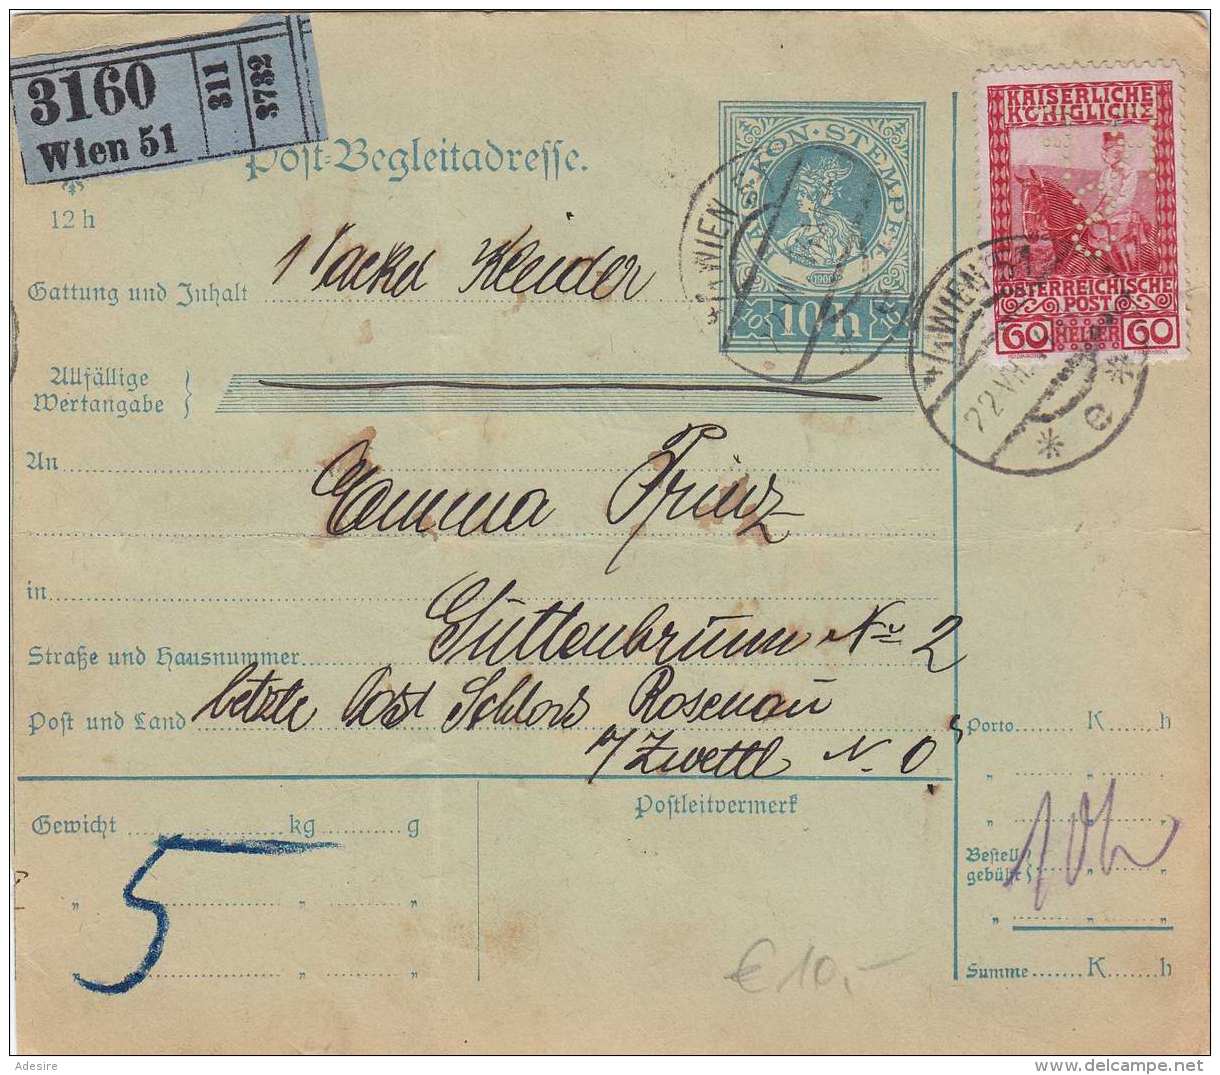 3160
Wien 51
311
3732
Post-Begleitadresse.
12 h
KAIS. KÖN. STEMPEL
1900
10 10 h 10
KAISERLICHE
KÖNIGLICHE
ÖSTERREICHISCHE
POST
60 HELLER 60
WIEN
WIEN 51
22 VII
e
Gattung und Inhalt 1 Packet Kleider
Allfällige
Wertangabe
An Emma Prinz
in
Straße und Hausnummer Guttenbrunn No 2
Post und Land letzte Post Schloss Rosenau
a/Zwettl N. Ö
Porto K h
Gewicht kg g
5
Postleitvermerk
Bestell-
gebühr
10h
Summe K h
€ 10,-
Adesire
delcampe.net